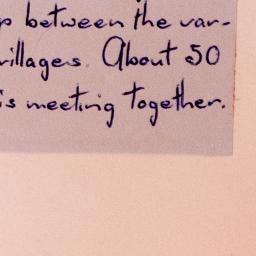 between the var-
villagers. About 50
is meeting together.